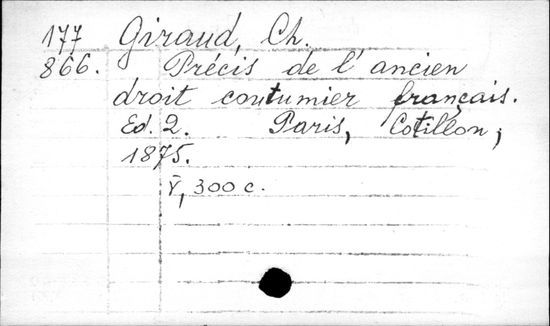 177 Giraud, Ch.
866. Précis de l'ancien
droit coutumier français.
Ed. 2. Paris, Cotillon,
1875.
V, 300 c.